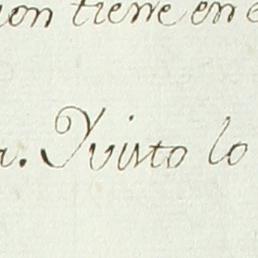 ion tiene en e
a. Yvisto lo